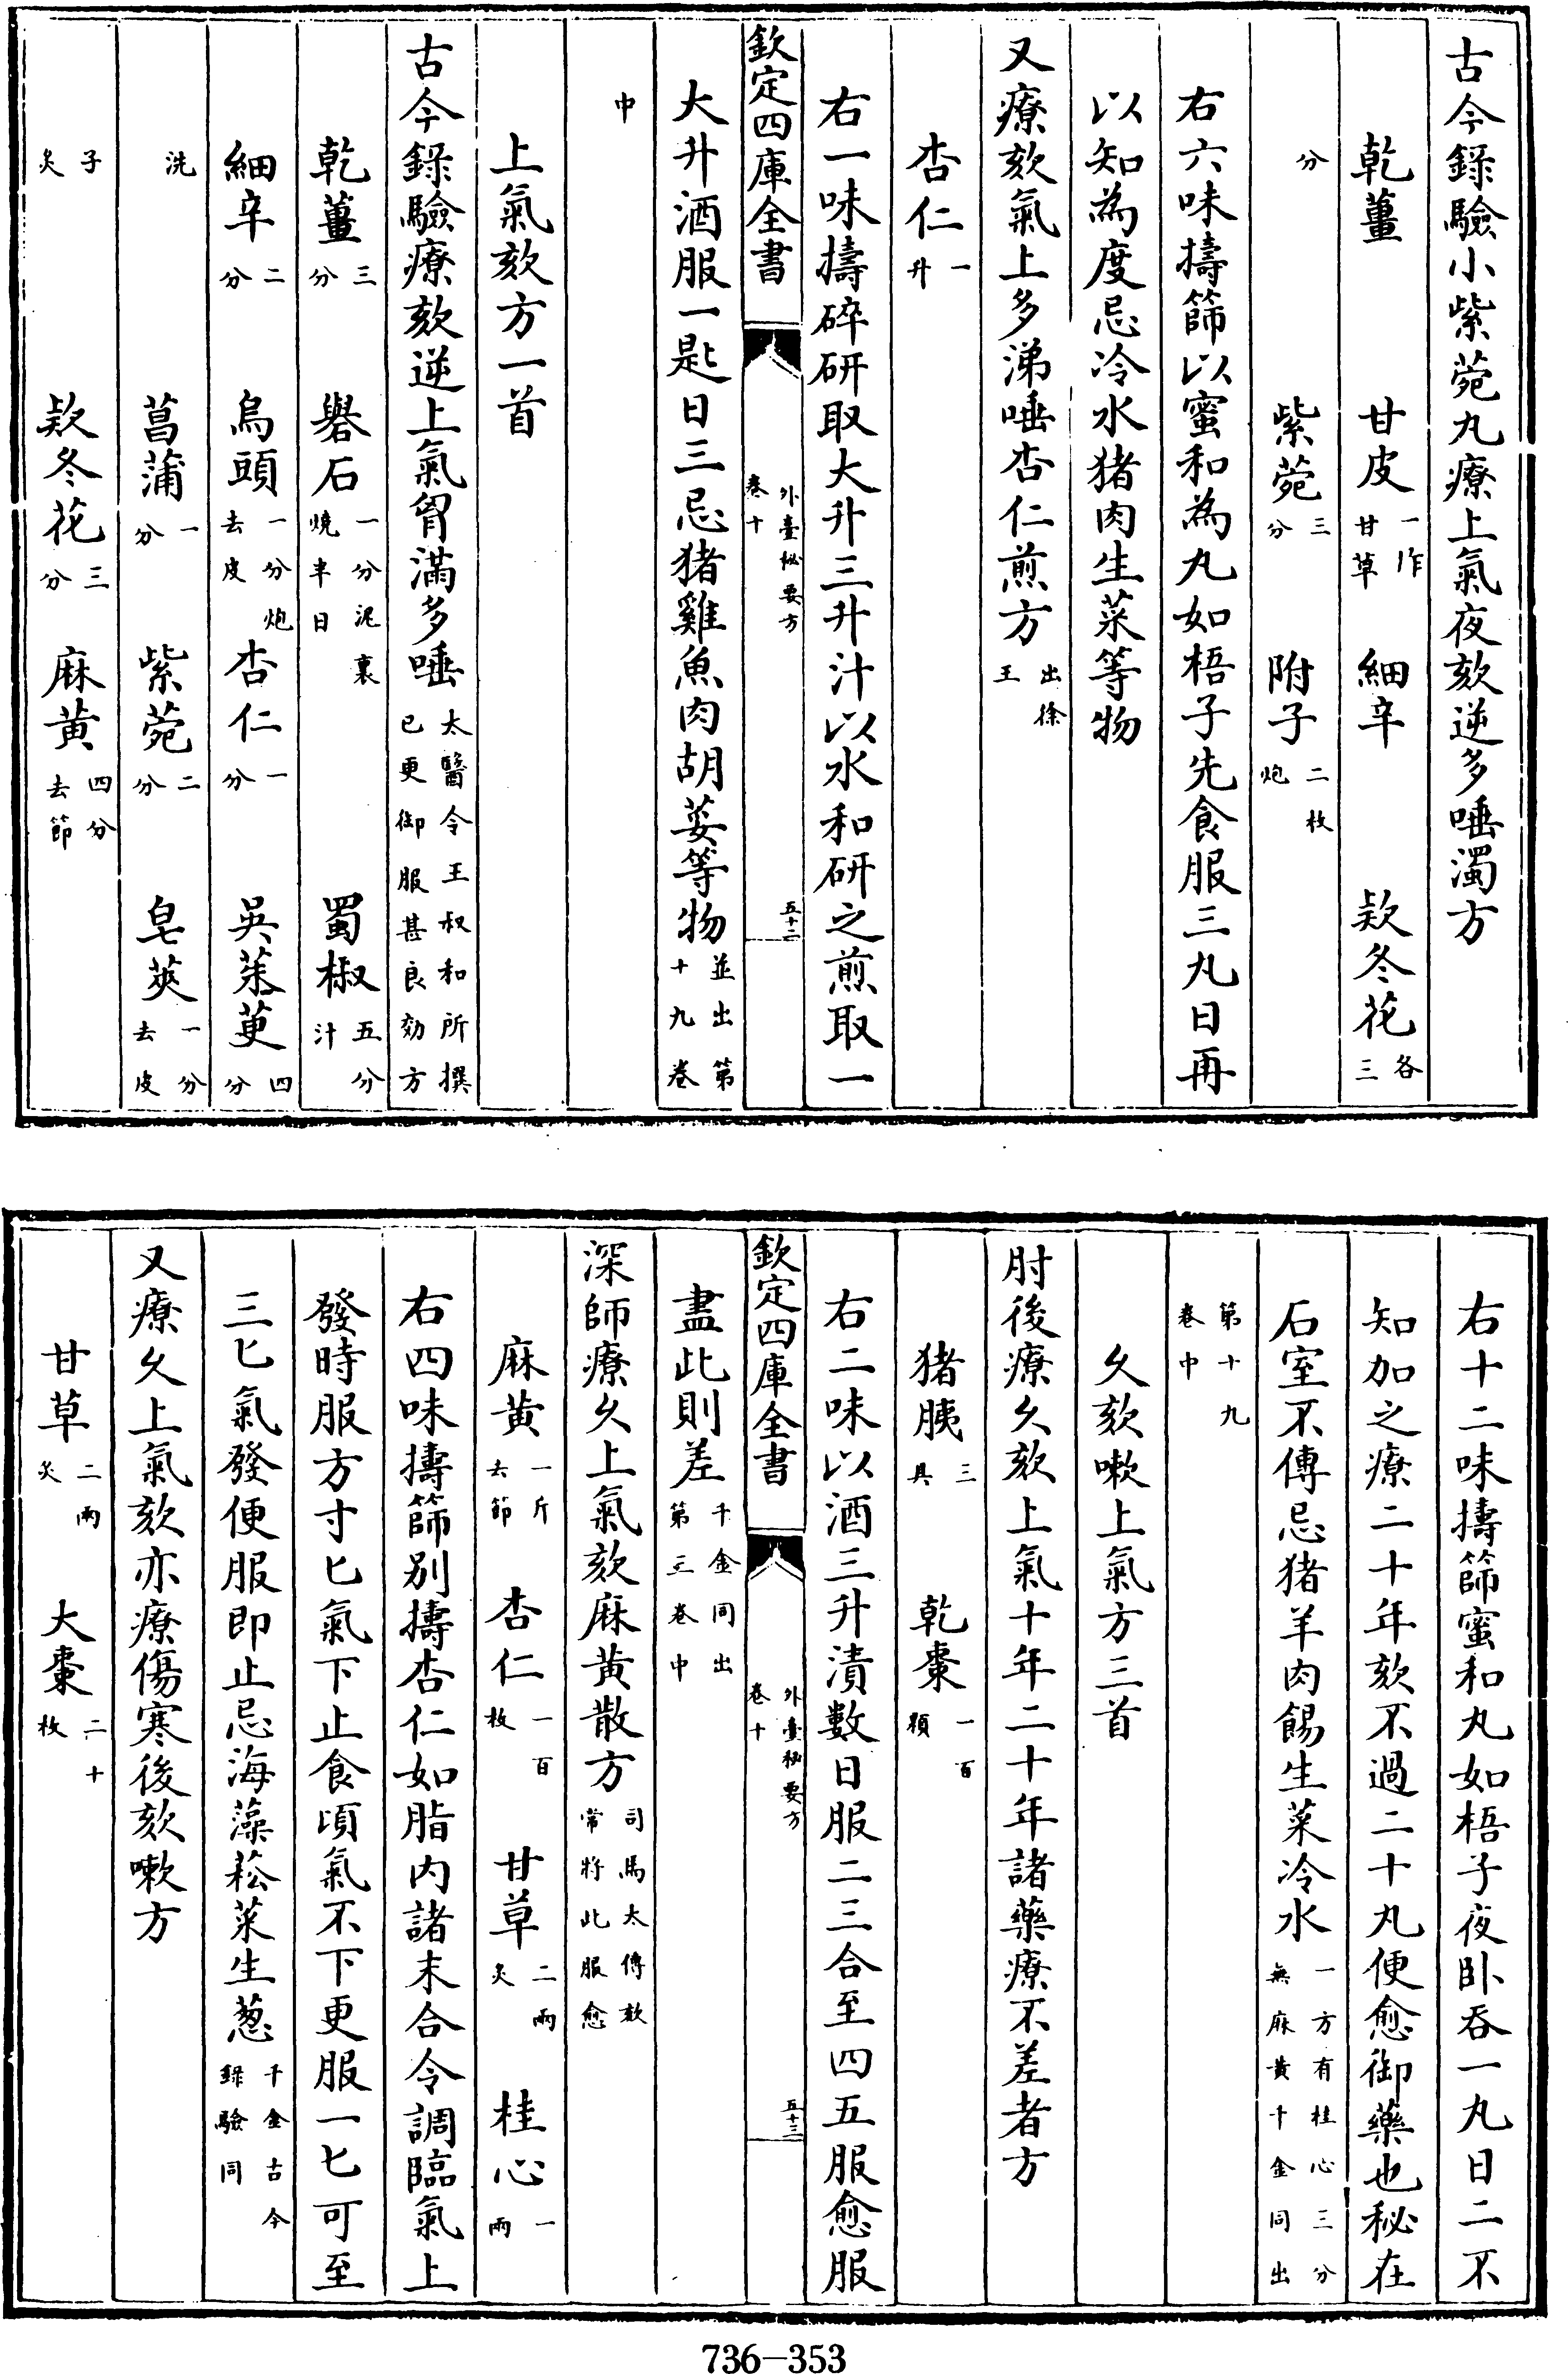 古今録驗小紫菀丸療上氣夜欬逆多唾濁方
乾薑 甘皮一作甘草 細辛 款冬花各三
分 紫菀三分 附子二枚炮
右六味擣篩以蜜和為丸如梧子先食服三丸日再
以知為度忌冷水猪肉生菜等物
又療欬氣上多涕唾杏仁煎方出徐王
杏仁一升
右一味擣碎研取大升三升汁以水和研之煎取一
欽定四庫全書 外臺秘要方卷十 五十二
大升酒服一匙日三忌猪雞魚肉胡荽等物並出第十九卷
中
上氣欬方一首
古今録驗療欬逆上氣胷滿多唾太醫令王叔和所撰已更御服甚良効方
乾薑三分 礜石一分泥裹燒半日 蜀椒五分汁
細辛二分 烏頭一分炮去皮 杏仁一分 吳茱萸四分
洗 菖蒲一分 紫菀二分 皂莢一分去皮
子炙 款冬花三分 麻黄四分去節
右十二味擣篩蜜和丸如梧子夜卧吞一丸日二不
知加之療二十年欬不過二十丸便愈御藥也秘在
石室不傳忌猪羊肉餳生菜冷水一方有桂心三分無麻黄千金同出
第十九卷中
久欬嗽上氣方三首
肘後療久欬上氣十年二十年諸藥療不差者方
猪胰三具 乾棗一百顆
右二味以酒三升漬數日服二三合至四五服愈服
欽定四庫全書 外臺秘要方卷十 五十三
盡此則差千金同出第三卷中
深師療久上氣欬麻黄散方司馬太傅欬常將此服愈
麻黄一斤去節 杏仁一百枚 甘草二兩炙 桂心一兩
右四味擣篩别擣杏仁如脂内諸末合令調臨氣上
發時服方寸匕氣下止食頃氣不下更服一匕可至
三匕氣發便服即止忌海藻菘菜生葱千金古今録驗同
又療久上氣欬亦療傷寒後欬嗽方
甘草二兩炙 大棗二十枚
736—353